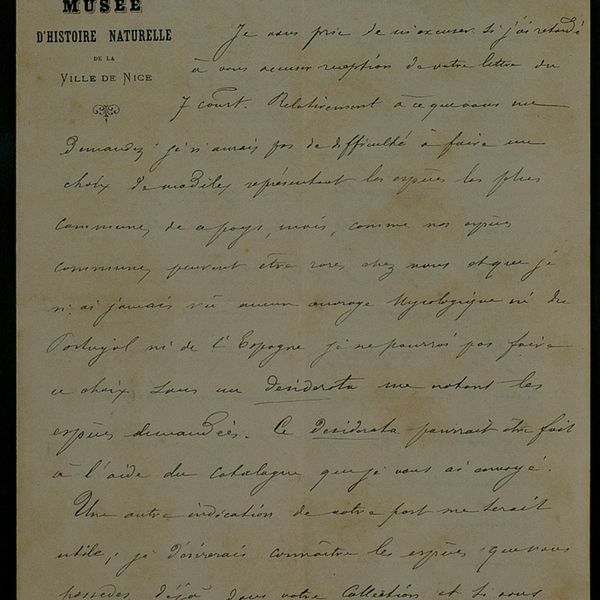 MUSÉE
D'HISTOIRE NATURELLE
DE LA
VILLE DE NICE
Je vous prie de m'excuser si j'ai retardé
à vous accuser reception de votre lettre du
7 court. Relativement à ce que vous me
demandez je n'aurais pas de difficulté à faire un
choix de modèles représentant les espèces les plus
communes de ce pays, mais, comme nos espèces
communes peuvent être rares chez vous et que je
n'ai jamais vu aucun ouvrage Mycologique ni du
Portugal ni de l'Espagne je ne pourrai pas faire
ce choix sans un desiderata me notant les
espèces demandées. Ce desiderata pourrait être fait
à l'aide du catalogue que je vous ai envoyé.
Une autre indication de votre part me serait
utile; je désirerais connaître les espèces que vous
possedez déjà dans votre Collection et si vous